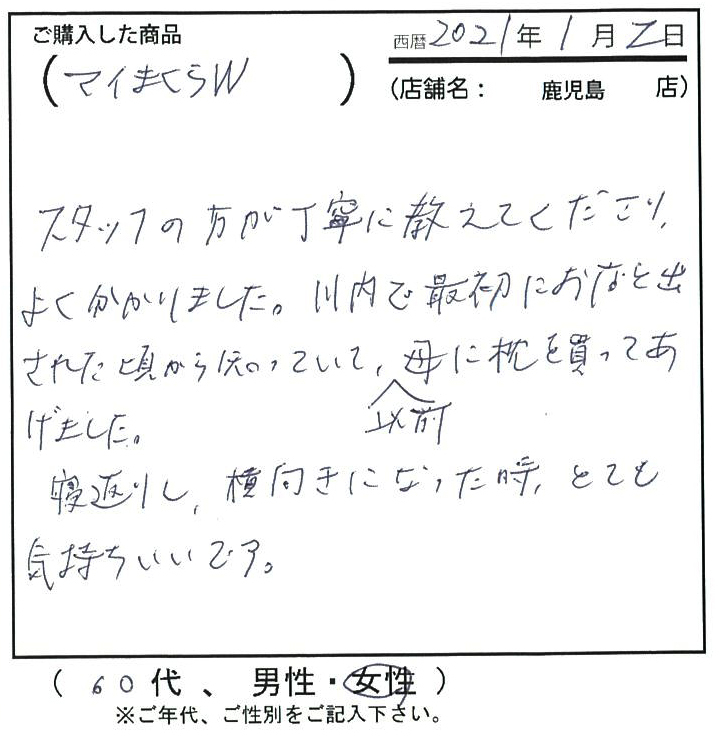 ご購入した商品
西暦2021年1月2日
(マイまくらW)
(店舗名： 鹿児島 店)
スタッフの方が丁寧に教えてくださり、
よく分かりました。川内で最初にお店を出
された頃から知っていて、以前母に枕を買ってあ
げました。
寝返りし、横向きになった時、とても
気持ちいいです。
(60代、男性・女性)
※ご年代、ご性別をご記入下さい。